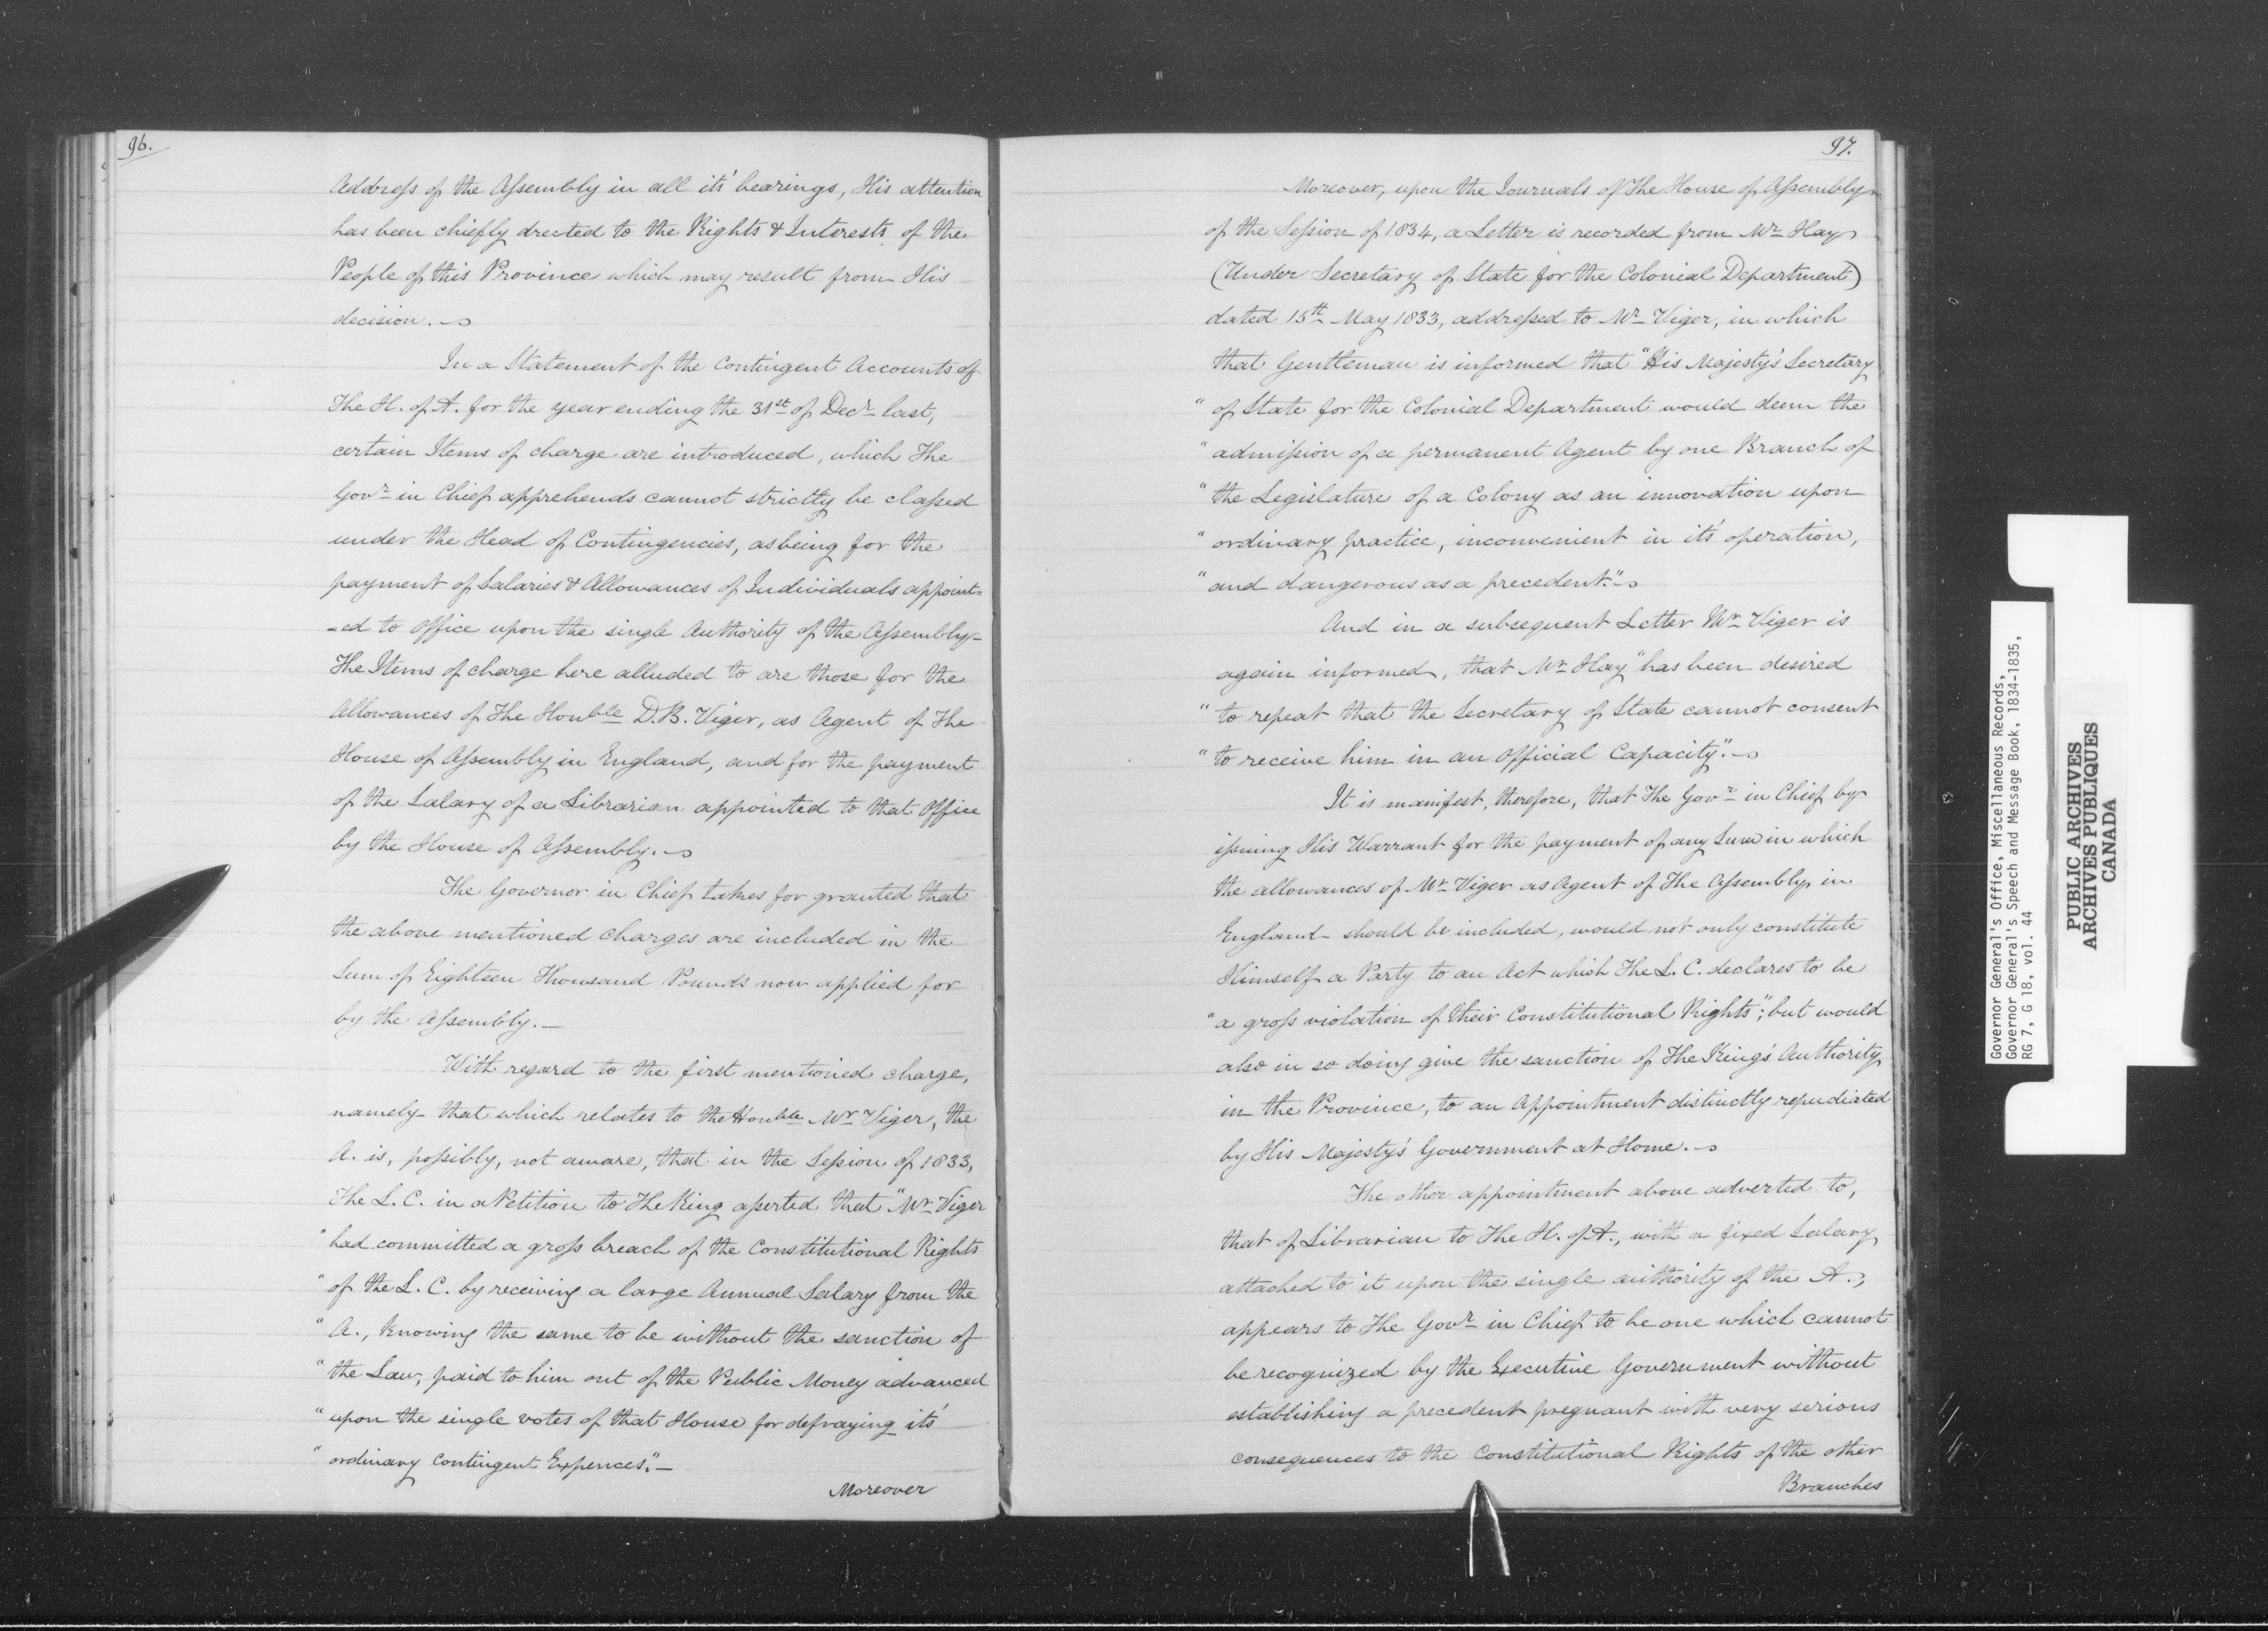 96.
Address of the Assembly in all its' bearings, His attention
has been chiefly drected to the Rights & Interests of the
People of this Province which may result from His
decision.
In a Statement of the Contingent Accounts of
The H. of A. for the year ending the 31st of Decr last,
certain Items of charge are introduced, which The
Govr in Chief apprehends cannot strictly be classed
under the Head of Contingencies, as being for the
payment of Salaries & Allowances of Individuals appoint=
=ed to Office upon the single Authority of the Assembly-
The Items of charge here alluded to are those for the
Allowances of The Honble D.B. Viger, as Agent of The
House of Assembly in England, and for the payment
of the Salary of a Librarian appointed to that Office
by the House of Assembly.
The Governor in Chief takes for granted that
the above mentioned charges are included in the
Sum of Eighteen Thousand Pounds now applied for
by the Assembly. —
With regard to the first mentioned charge,
namely that which relates to the Honble Mr Viger, the
A. is, possibly, not aware, that in the Session of 1833,
The L. C. in a Petition to The King asserted that "Mr Viger
" had committed a gross breach of the Constitutional Rights
" of the L. C. by receiving a large Annual Salary from the
" A., knowing the same to be without the sanction of
" the Law, paid to him out of the Public Money advanced
" upon the single votes of that House for defraying its'
" ordinary Contingent Expences." —
Moreover
97.
Moreover, upon the Journals of The House of Assembly
of the Session of 1834, a Letter is recorded from Mr Hay
(Under Secretary of State for the Colonial Department)
dated 15th May 1833, addressed to Mr Viger, in which
that Gentleman is informed that "His Majesty's Secretary
" of State for the Colonial Department would deem the
" admission of a permanent Agent by one Branch of
" the Legislature of a Colony as an innovation upon
" ordinary practice, inconvenient in its' operation,
" and dangerous as a precedent."
And in a subsequent Letter Mr Viger is
again informed, that Mr Hay "has been desired
" to repeat that the Secretary of State cannot consent
" to receive him in an Official Capacity."
It is manifest, therefore, that The Govr in Chief by
issuing His Warrant for the payment of any Sum in which
the allowances of Mr Viger as Agent of The Assembly in
England should be included, would not only constitute
Himself a Party to an Act which The L. C. declares to be
"a gross violation of their Constitutional Rights"; but would
also in so doing give the sanction of The King's Authority
in the Province, to an Appointment distinctly repudiated
by His Majesty's Government at Home.
The other appointment above adverted to,
that of Librarian to The H. of A., with a fixed Salary
attached to it upon the single authority of the A.,
appears to The Govr in Chief to be one which cannot
be recognized by the Executive Government without
establishing a precedent pregnant with very serious
consequences to the Constitutional Rights of the other
Branches
Governor General's Office, Miscellaneous Records,
Governor General's Speech and Message Book, 1834-1835,
RG 7, G 18, vol. 44
PUBLIC ARCHIVES
ARCHIVES PUBLIQUES
CANADA